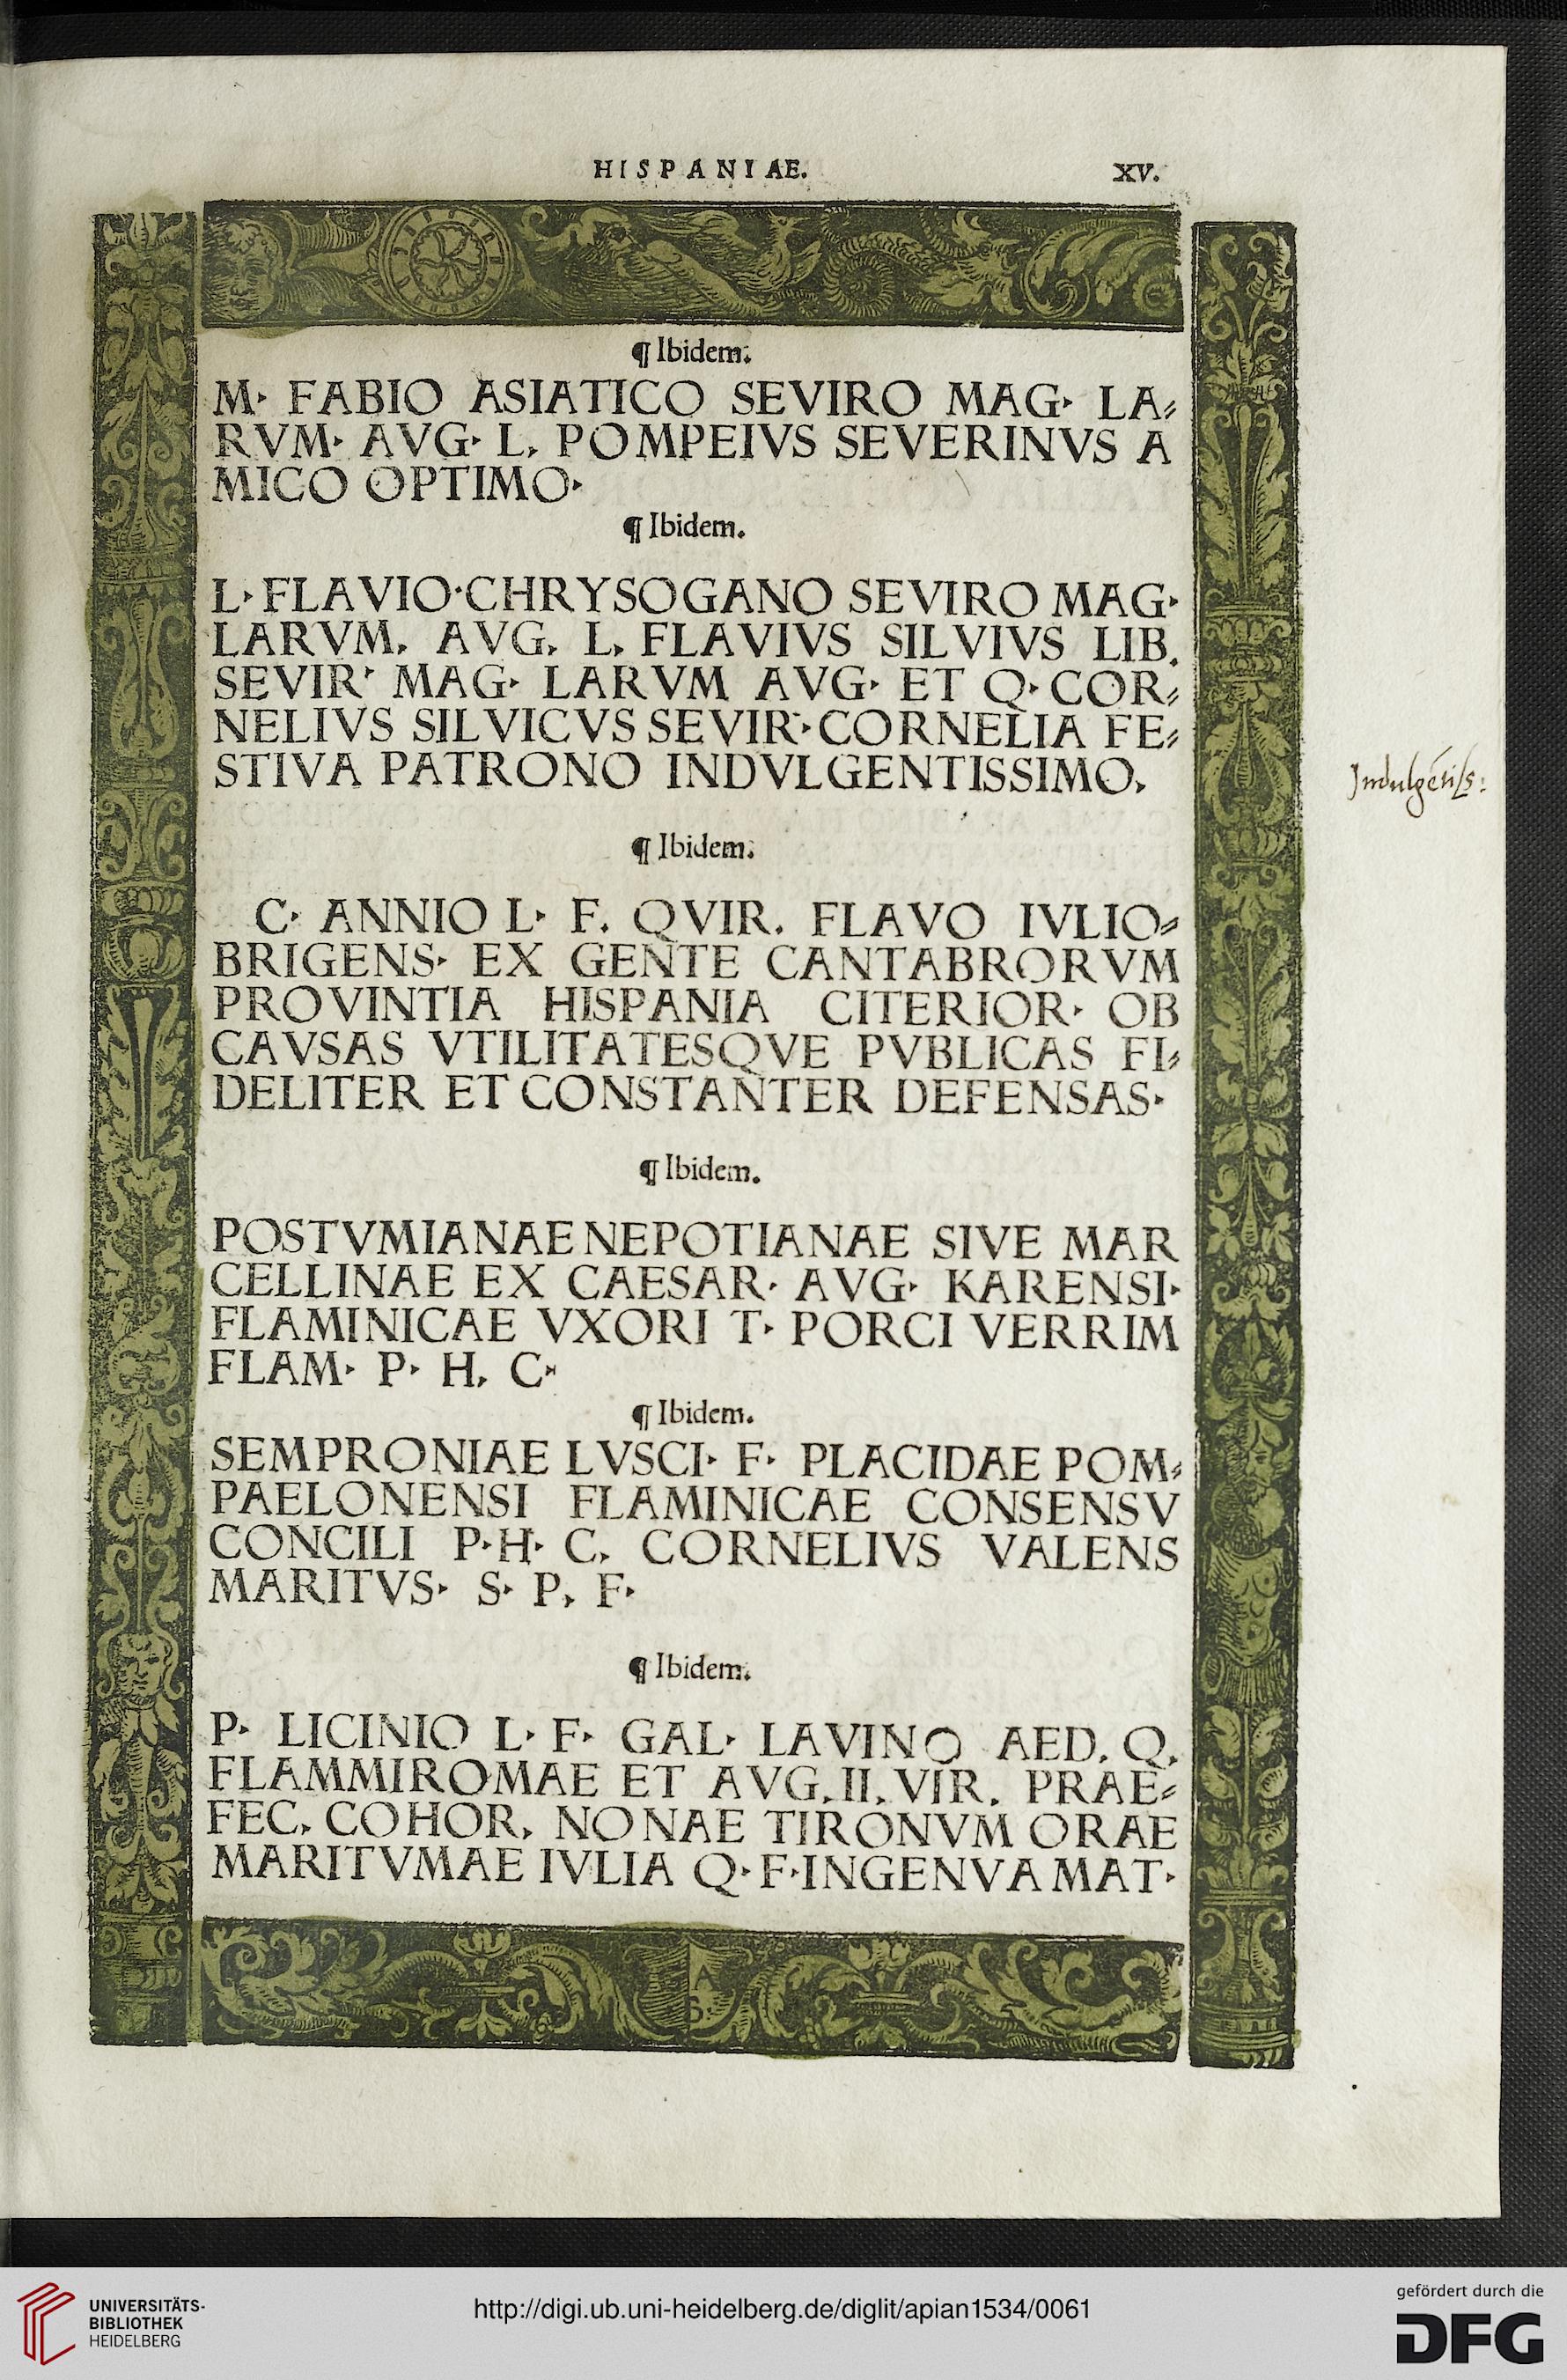 HISPANIAE. XV.
¶ Ibidem.
M. FABIO ASIATICO SEVIRO MAG. LA⸗
RVM. AVG. L. POMPEIVS SEVERINVS A
MICO OPTIMO.
¶ Ibidem.
L. FLAVIO.CHRYSOGANO SEVIRO MAG.
LARVM. AVG. L. FLAVIVS SILVIVS LIB.
SEVIR. MAG. LARVM AVG. ET Q. COR⸗
NELIVS SILVICVS SEVIR. CORNELIA FE⸗
STIVA PATRONO INDVLGENTISSIMO.
Indulgētiſs:
¶ Ibidem.
C. ANNIO L. F. QVIR. FLAVO IVLIO⸗
BRIGENS. EX GENTE CANTABRORVM
PROVINTIA HISPANIA CITERIOR. OB
CAVSAS VTILITATESQVE PVBLICAS FI⸗
DELITER ET CONSTANTER DEFENSAS.
¶ Ibidem.
POSTVMIANAE NEPOTIANAE SIVE MAR
CELLINAE EX CAESAR. AVG. KARENSI.
FLAMINICAE VXORI T. PORCI VERRIM
FLAM. P. H. C.
¶ Ibidem.
SEMPRONIAE LVSCI. F. PLACIDAE POM⸗
PAELONENSI FLAMINICAE CONSENSV
CONCILI P.H. C. CORNELIVS VALENS
MARITVS. S. P. F.
¶ Ibidem.
P. LICINIO L. F. GAL. LAVINO AED. Q.
FLAMMIROMAE ET AVG. II. VIR. PRAE⸗
FEC. COHOR. NONAE TIRONVM ORAE
MARITVMAE IVLIA Q. F. INGENVA MAT.
A
B
UNIVERSITÄTS-
BIBLIOTHEK
HEIDELBERG
http://digi.ub.uni-heidelberg.de/diglit/apian1534/0061
gefördert durch die
DFG